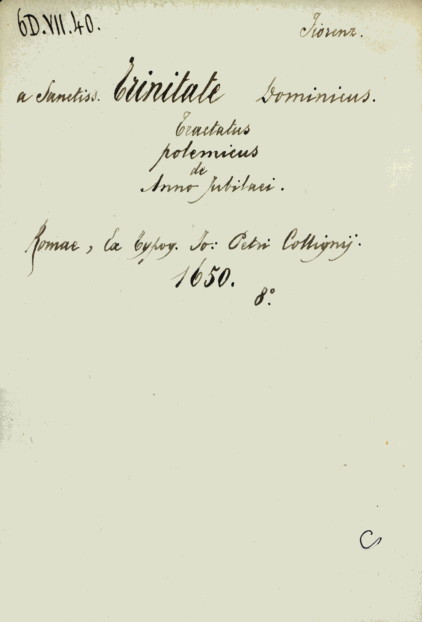 6D.VII.40.
Fiorenz.
a Sanctiss. Trinitate Dominicus.
Tractatus
polemicus
de
Anno Jubilaei.
Romae, Ex Typog. Jo: Petri Collignij.
1650.
8º.
C